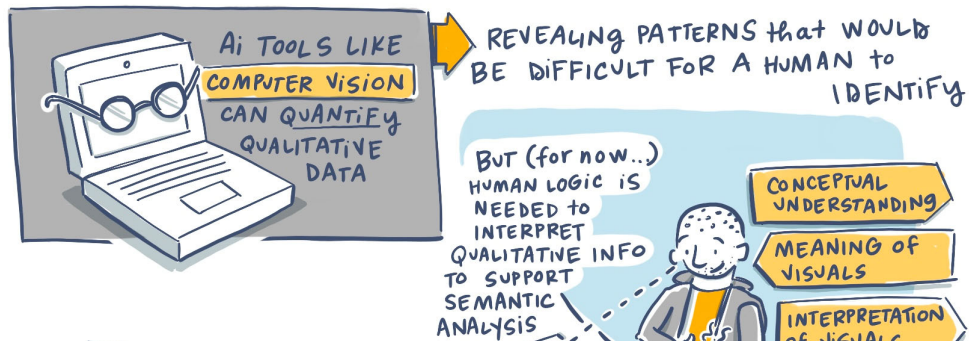 Ai TOOLS LIKE
COMPUTER VISION
CAN QUANTIFY
QUALITATIVE
DATA
REVEALING PATTERNS that WOULD
BE DIFFICULT FOR A HUMAN to
IDENTIFY
BUT (for now...)
HUMAN LOGIC iS
NEEDED to
INTERPRET
QUALITATIVE INFO
TO SUPPORT
SEMANTIC
ANALYSIS
CONCEPTUAL
UNDERSTANDING
MEANING OF
VISUALS
INTERPRETATION
OF VISUALS